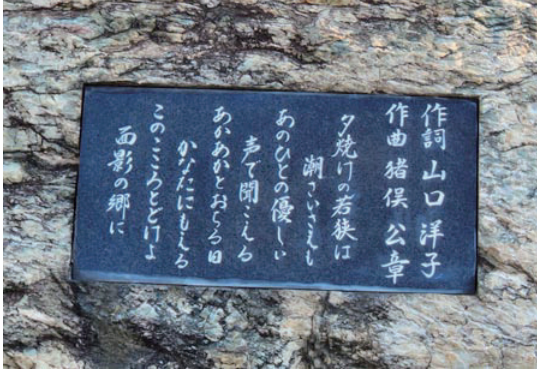 作詞 山口 洋子
作曲 猪俣 公章
夕焼けの若狭は
潮さいさえも
あのひとの優しい
声で聞こえる
あかあかとおちる日
かなたにもえる
このこころとどけよ
面影の郷に